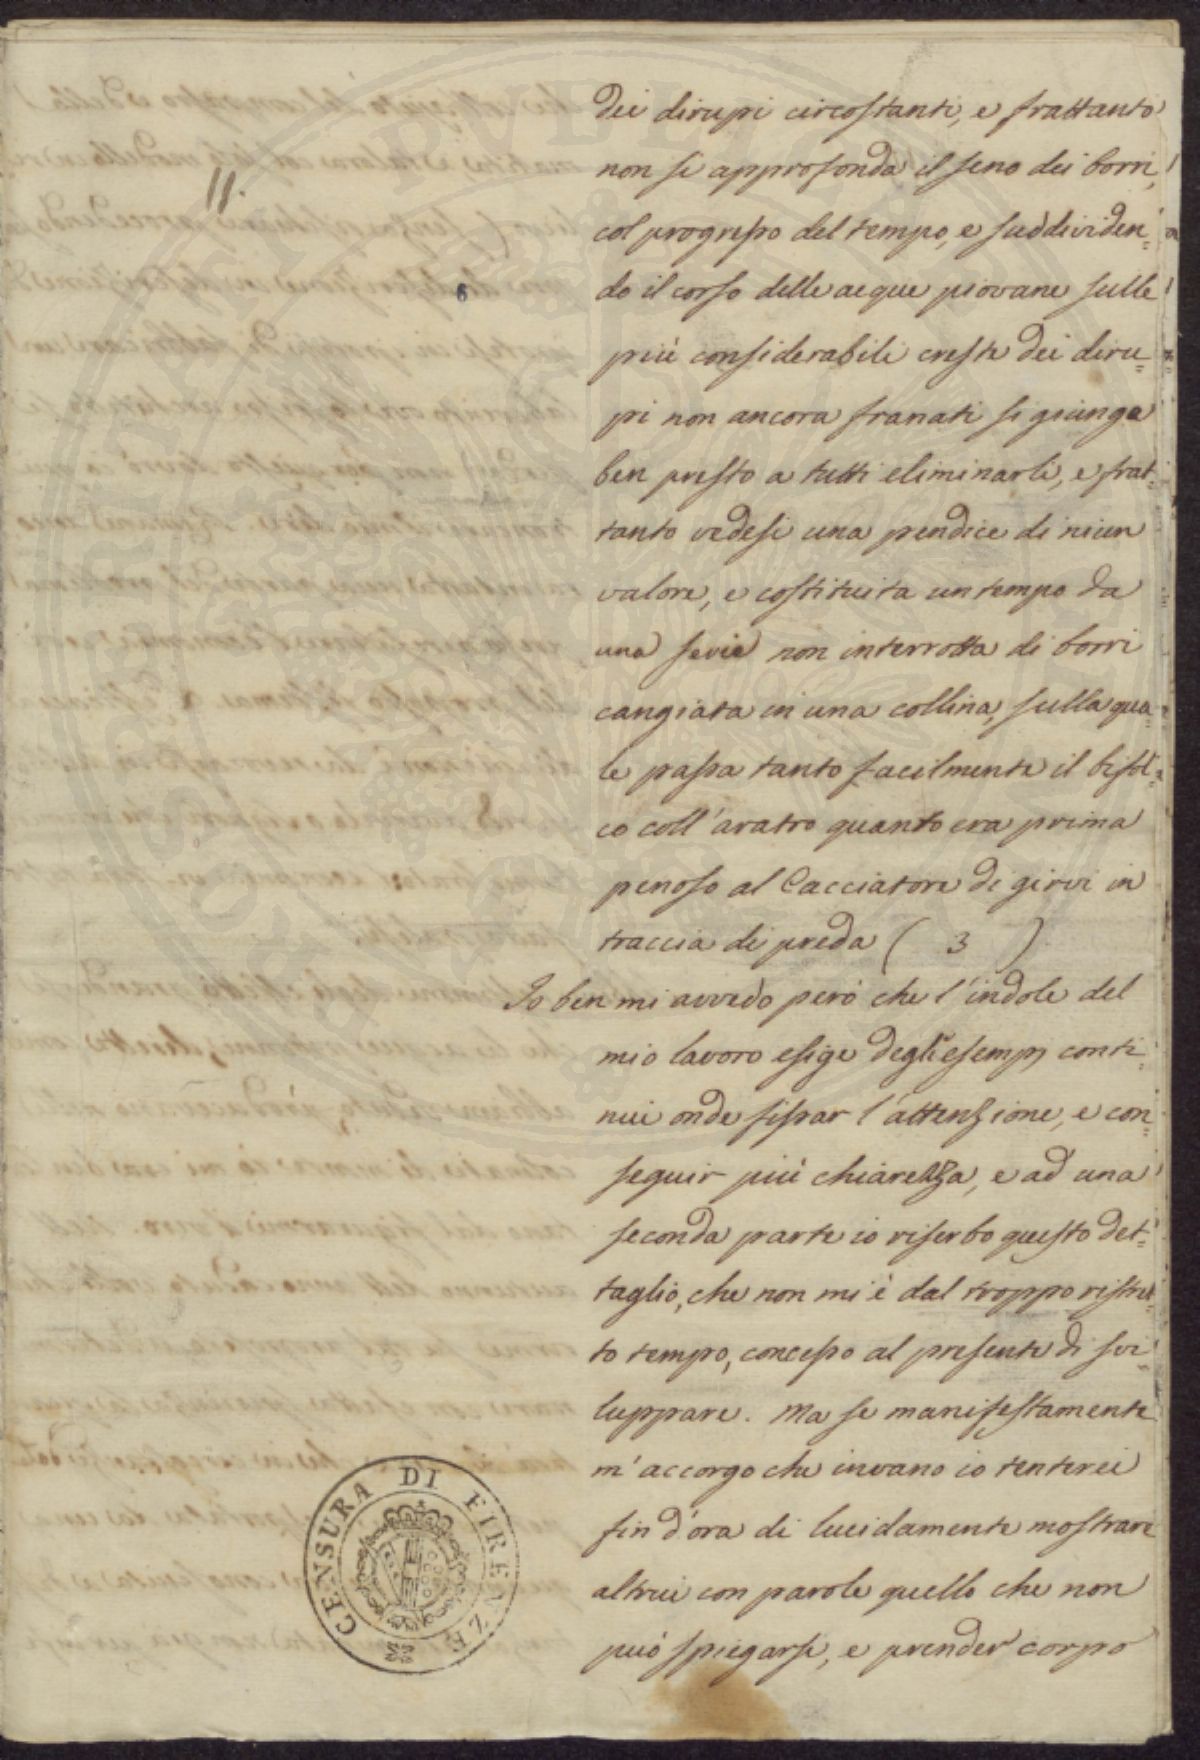 11.
dei dirupi circostanti, e frattanto
non si approfonda il seno dei borri,
col progresso del tempo, e suddividen=
do il corso delle acque piovane sulle
più considerabili creste dei diru=
pi non ancora franati si giunga
ben presto a tutti eliminarli, e frat=
tanto vedesi una pendice di niun
valore, e costituita un tempo da
una serie non interrotta di borri
cangiata in una collina, sulla qua=
le passa tanto facilmente il bifol=
co coll'aratro quanto era prima
penoso al Cacciatore di girvi in
traccia di preda ( 3 )
Io ben mi avvedo però che l'indole del
mio lavoro esige degli esempj conti=
nui onde fissar l'attenzione, e con=
seguir più chiarezza, e ad una
seconda parte io riserbo questo det=
taglio, che non mi è dal troppo ristret=
to tempo, concesso al presente di svi=
luppare. Ma se manifestamente
m'accorgo che invano io tenterei
fin d'ora di lucidamente mostrare
altrui con parole quello che non
può spiegarsi, e prender corpo
CENSURA DI FIRENZE